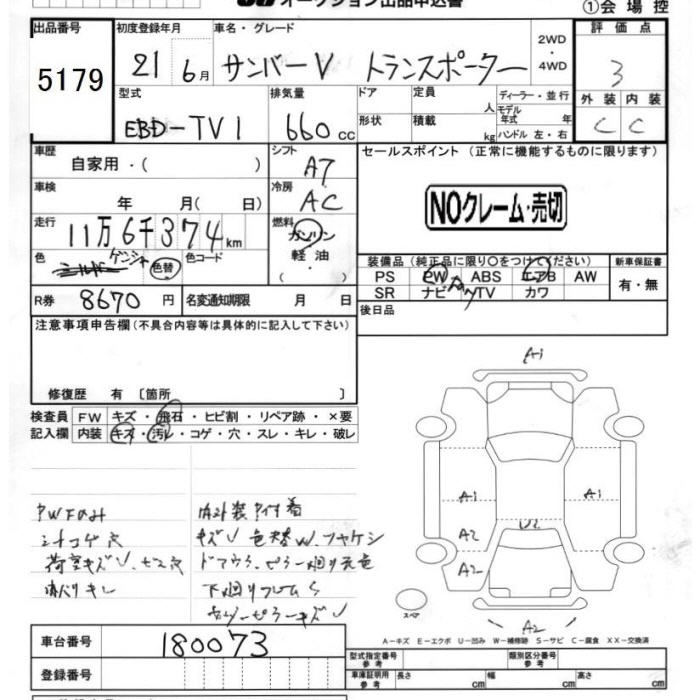 オークション出品申込書 ①会場控
出品番号 初度登録年月 車名・グレード 評価点
5179 21 6月 サンバーV トランスポーター 2WD・4WD 3
型式 排気量 ドア 定員 人 ディーラー・並行 外装 内装
EBD-TV1 660cc 形状 積載 kg モデル年式 年 ハンドル 左・右 C C
車歴 自家用・( ) シフト AT セールスポイント (正常に機能するものに限ります)
車検 年 月( 日) 冷房 AC NOクレーム・売切
走行 11万6千374km 燃料 ガソリン・軽油・( )
色 シルバー 色替 色コード 装備品(純正品に限り○をつけてください) 新車保証書
PS PW ABS エアB AW 有・無
SR ナビ TV カワ
R券 8670円 名変通知期限 月 日 後日品
注意事項申告欄(不具合内容等は具体的に記入して下さい)
修復歴 有 〔箇所 〕
検査員 FW キズ・飛石・ヒビ割・リペア跡・×要
記入欄 内装 キズ・汚レ・コゲ・穴・スレ・キレ・破レ
A1
A1 A1
A2 U2
A2
A2
PWFのみ
シートコゲ穴
荷室キズU、ビス穴
内ハリキレ
キズU 色替W、フヤケシ
下廻りフレームS
スペア
A-キズ E-エクボ U-凹み W-補修跡 S-サビ C-腐食 XX-交換済
車台番号 180073 型式指定番号 参考 類別区分番号 参考
登録番号 車庫証明用 参考 長さ cm 幅 cm 高さ cm